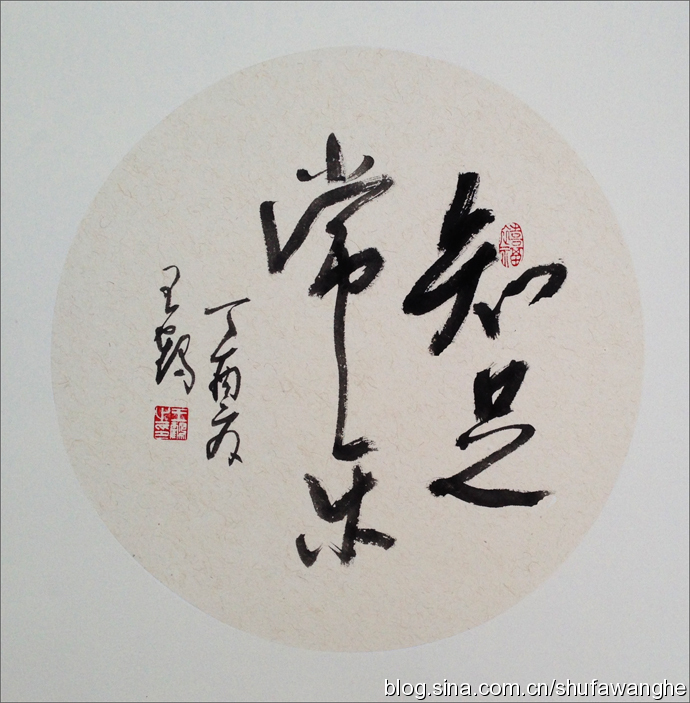 知足
常乐
丁酉夏
王鶴
王鶴之印
blog.sina.com.cn/shufawanghe